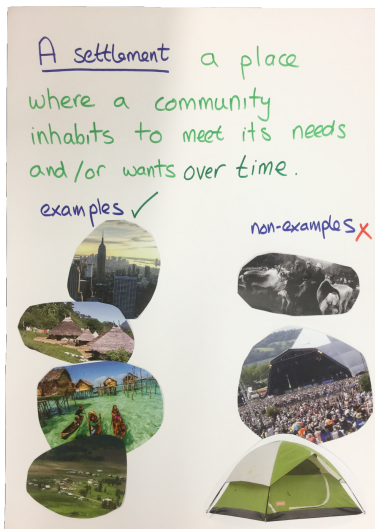 A settlement a place
where a community
inhabits to meet its needs
and/or wants over time.
examples ✓
non-examples ✗